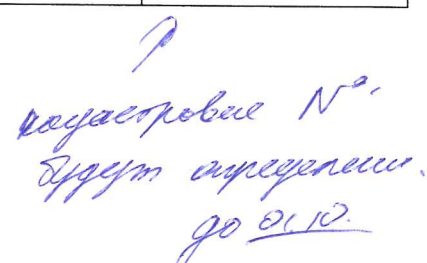 кадастровые №.
будут определены.
до 01.10.